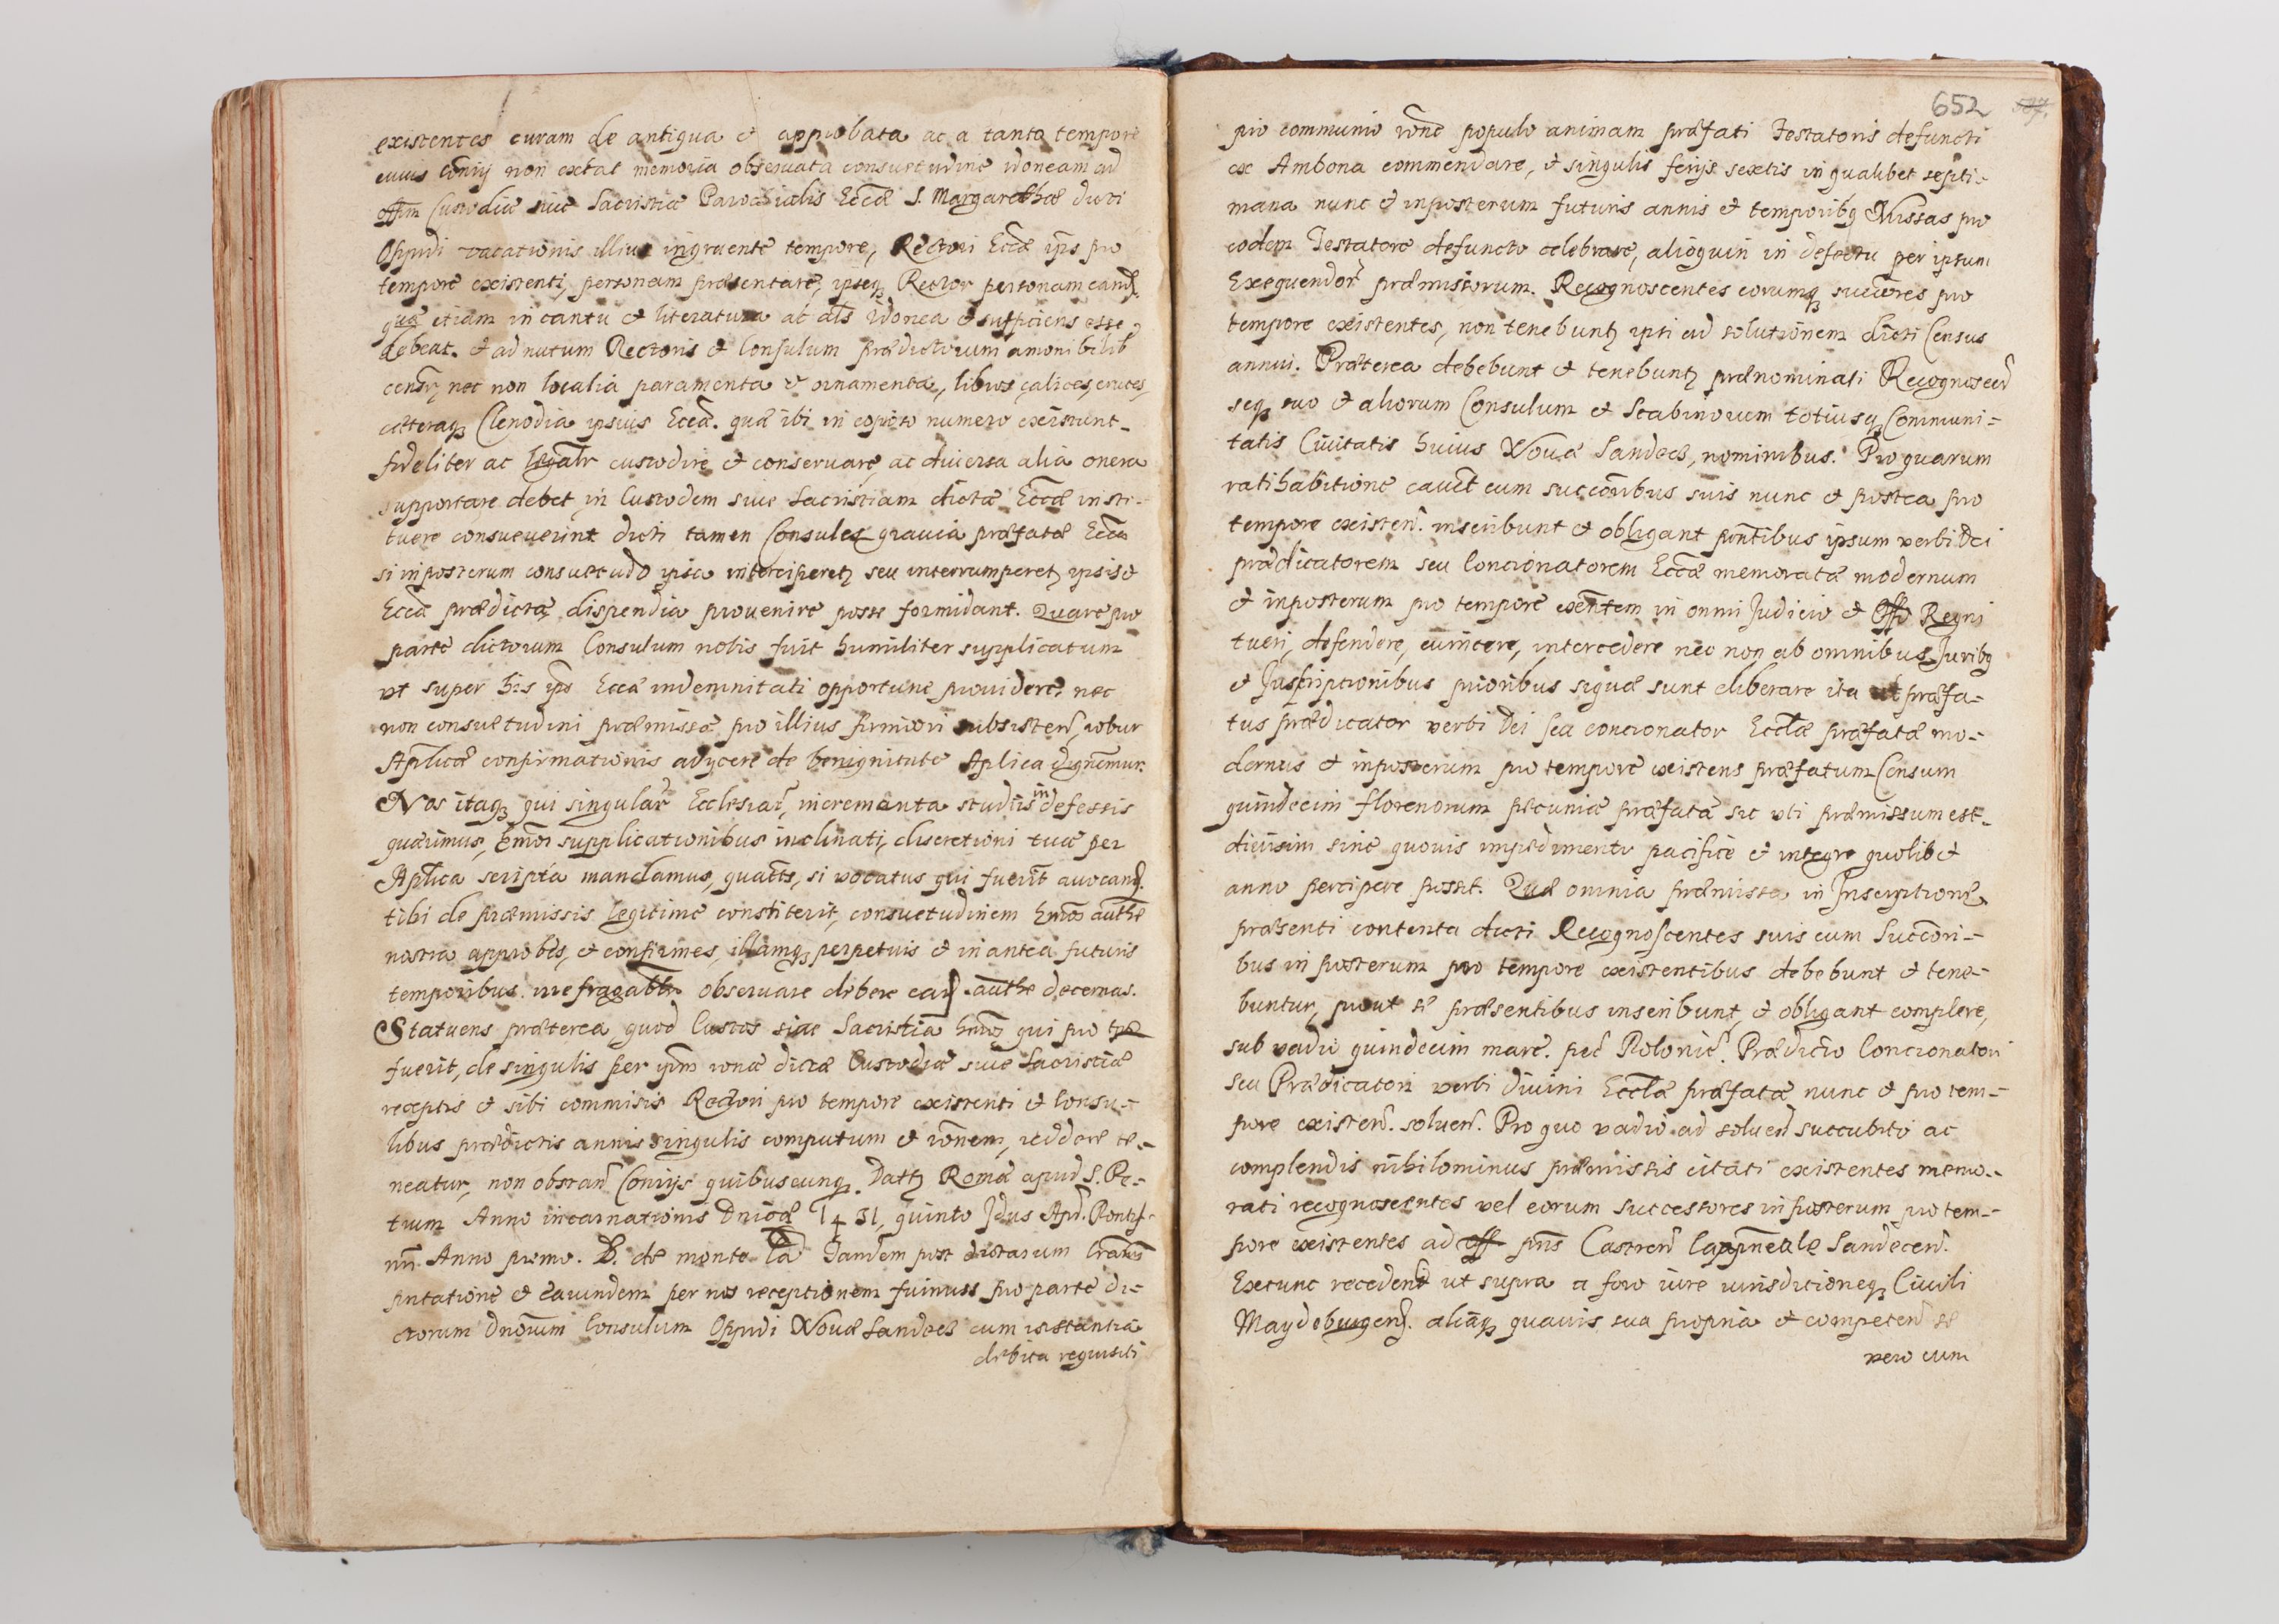 existentes curam de antiqua et approbata ac a tanto tempore
cuius contrarij non extat memoria obseruata consuetudine idoneam ad
offm Custodiæ siue Sacristiæ Parochialis Eccæ S. Margarethæ dicti
Oppidi vacationis illius ingruente tempore, Rectori Eccæ ips pro
tempore existenti, personam præsentare, ipseq Rector personam eand.
quæ etiam in cantu et literatura ac als idonea et sufficiens esse
debeat. et ad nutum Rectoris et Consulum prædictorum amonibilis
censr, nec non localia paramenta et ornamenta, libros, calices, cruces,
cæteraq Clenodia ipsius Eccæ. quæ ibi in copioso numero existunt
fideliter ac legalr custodire et conseruare, ac diuersa alia onera
supportare debet, in Custodem siue Sacristam dictæ Eccæ insti-
tuere consueuerint dicti tamen Consules grauia præfatæ Eccæ
si inposterum consuetudo ipsa interciperetr seu interrumperetr ipsis et
Eccæ prædictæ, dispendia prouenire posse formidant. Quare pro
parte dictorum Consulum nobis fuit humiliter supplicatum
vt super his ips Eccæ indemnitati opportune prouidere, nec
non consuetudini præmissæ pro illius firmiori subsisten, robur
Aplicæ confirmationis adijcere de benignitate Aplica dignemur.
Nos itaq, qui singular Ecclesiar, incrementa studiis indefessis
quærimus, hmoi supplicationibus inclinati, discretioni tuæ per
Aplica scripta mandamus, quatts, si vocatus qui fuerit auocand.
tibi de præmissis legitime constiterit, consuetudinem hmoi authe
nostra approbes, et confirmes, illamq, perpetuis et in antea futuris
temporibus irrefragablr obseruare debere ead. authe decernas.
Statuens præterea, quod Custos siue Sacristia hmoi qui pro tpe
fuerit, de singulis per ipm rone dictæ Custodiæ siue Sacristiæ
receptis et sibi commisis Rectori pro tempore existenti et Consu-
libus prædictis annis singulis computum et ronem, reddere te-
neatur, non obstan Contrijs quibuscunq. Datt Romæ apud S. Pe-
trum Anno incarnationis Dnicæ 1431, quinto Idus Apr. Pontif-
nri Anno primo. B. de monte La Tandem post dictarum lrarum
pntatione et earundem per nos receptionem fuimuss pro parte di-
ctorum Dnorum Consulum Oppidi Nouæ Sandecz cum instantia
debita requisiti
652
pro communio rone populo animam præfati Testatoris defuncti
ex Ambona commendare, et singulis ferijs sextis in qualibet septi-
mana nunc et inposterum futuris annis et temporibq Missas pro
eodem Testatore defuncto celebrare, alioquin in defectu per ipsum
Exequendor præmissorum. Recognoscentes eorumq, succores pro
tempore existentes, non tenebuntr ipsi ad solutionem dicti Census
annui. Præterea debebunt et tenebuntr prænominati Recognoscen
seq, suo et aliorum Consulum et Scabinorum totiusq, Communi-
tatis Ciuitatis huius Nouæ Sandecz, nominibus. Pro quarum
ratihabitione cauet cum succoribus suis nunc et postea pro
tempore existen. inscribunt et obligant pntibus ipsum verbi Dei
prædicatorem seu Concionatorem Eccæ memoratæ modernum
et inposterum pro tempore exntem in omni Judicio et Offo Regni
tueri, defendere, euincere, intercedere nec non ab omnibus Juribq
et Inscriptionibus prioribus siquæ sunt eliberare ita ut præfa-
tus prædicator verbi Dei seu concionator Ecclæ præfatæ mo-
dernus et inposterum pro tempore existens præfatum Censum
quindecim florenorum pecuniæ præfatæ sic vti præmissum est
diuisim sine quouis impedimento pacifice et integre quolibet
anno percipere possit. Quæ omnia præmissa in Inscriptione
præsenti contenta dicti Recognoscentes suis cum Succori-
bus in posterum pro tempore existentibus debebunt et tene-
buntur, prout se præsentibus inscribunt, et obligant complere,
sub vadio quindecim marc. pec Polonic. Prædicto Concionatori
seu Prædicatori verbi Diuini Ecclæ præfatæ nunc et pro tem-
pore existen. soluen. Pro quo vadio ad soluen succubito ac
complendis nihilominus præmissis citati existentes memo-
rati recognoscentes vel eorum successores inposterum pro tem-
pore existentes ad off pns Castren Capneale Sandecen.
Extunc receden ut supra a foro iure iurisdictioneq, Ciuili
Maydeburgen. aliaq, quauis sua propria et competen se
vero cum